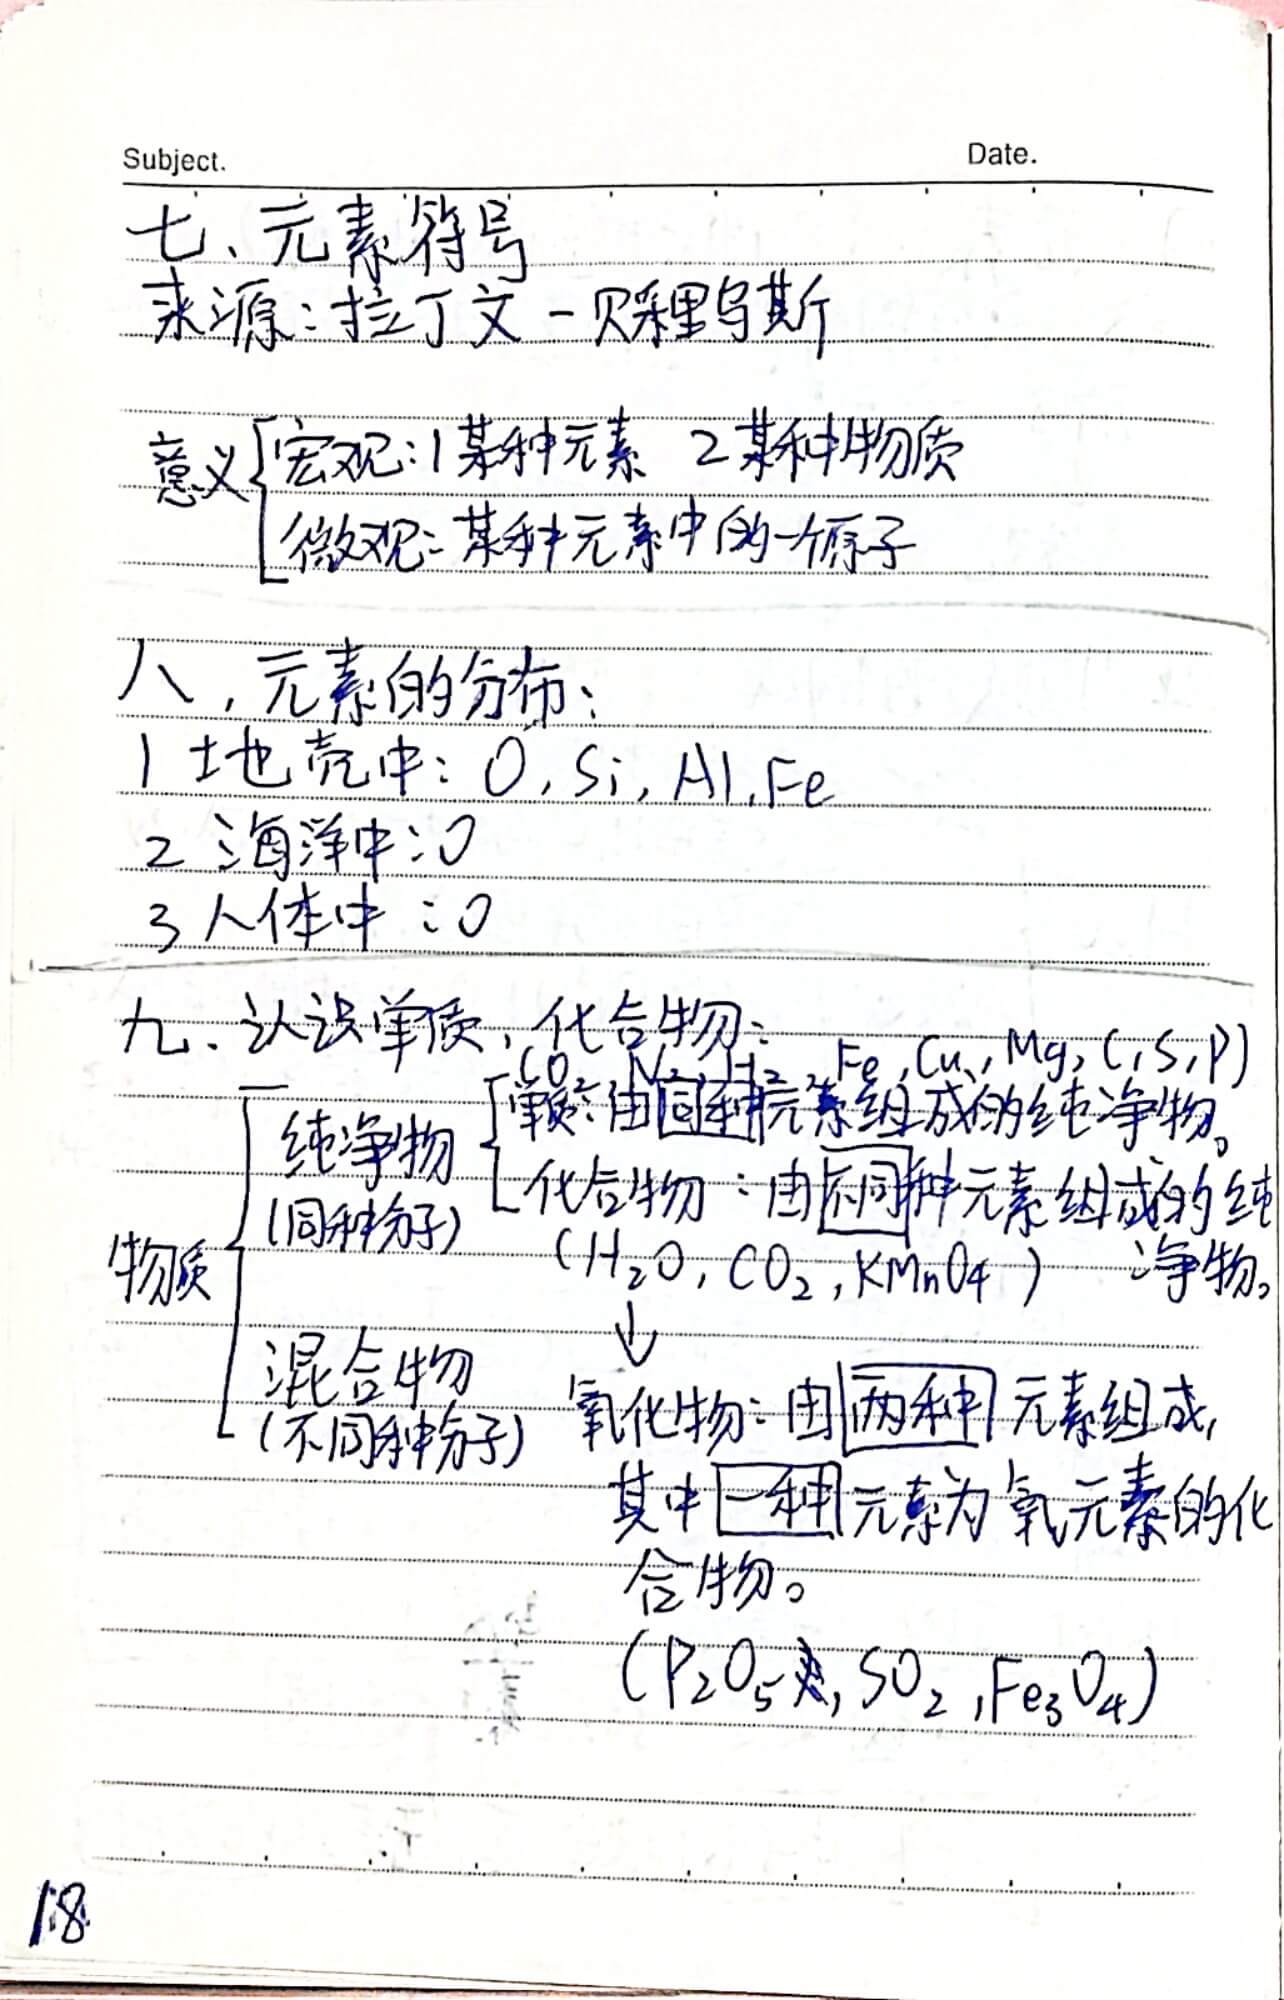 Subject. Date.
七、元素符号
来源：拉丁文－贝采里乌斯
意义
宏观：1某种元素 2某种物质
微观：某种元素中的一个原子
八，元素的分布：
1 地壳中：O，Si，Al，Fe
2 海洋中：O
3 人体中：O
九、认识单质，化合物：
(O₂，N₂，H₂，Fe，Cu，Mg，C，S，P)
纯净物 单质：由同种元素组成的纯净物。
(同种分子) 化合物：由不同种元素组成的纯
物质 (H₂O，CO₂，KMnO4) 净物。
↓
混合物 氧化物：由两种元素组成，
(不同种分子)
其中一种元素为氧元素的化
合物。
(P₂O₅，SO₂，Fe₃O₄)
18